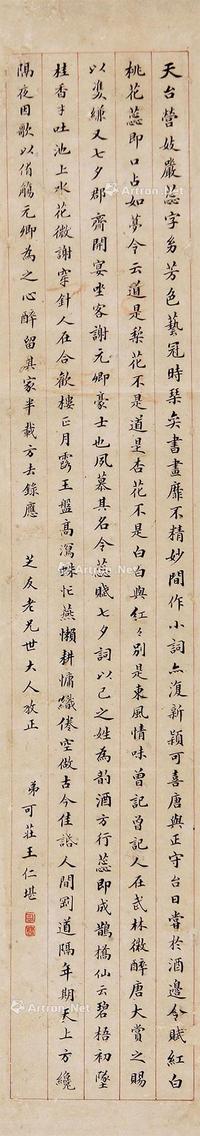 天台營妓嚴蕊字幼芳色藝冠時琴奕書畫靡不精妙間作小詞亦復新穎可喜唐與正守台日嘗於酒邊令賦紅白
桃花蕊即口占如夢令云道是梨花不是道是杏花不是白白與紅紅別是東風情味曾記曾記人在武林微醉唐大賞之賜
以雙縑又七夕郡齋開宴坐客謝元卿豪士也夙慕其名令蕊賦七夕詞以己之姓為韵酒方行蕊即成鵲橋仙云碧梧初墜
桂香才吐池上水花微謝穿針人在合歡樓正月露玉盤高瀉蛛忙燕懶耕慵織倦空做古今佳話人間剛道隔年期天上方纔
隔夜因歌以侑觴元卿為之心醉留其家半載方去錄應
芝友老兄世大人教正
弟可莊王仁堪